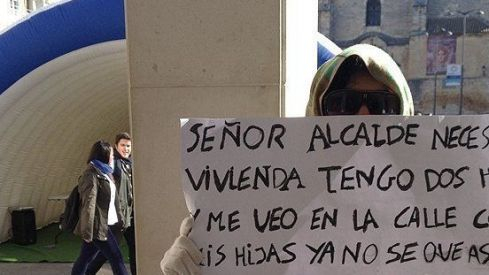 SEÑOR ALCALDE NECES
VIVIENDA TENGO DOS H
Y ME VEO EN LA CALLE C
MIS HIJAS YA NO SE QUE AS